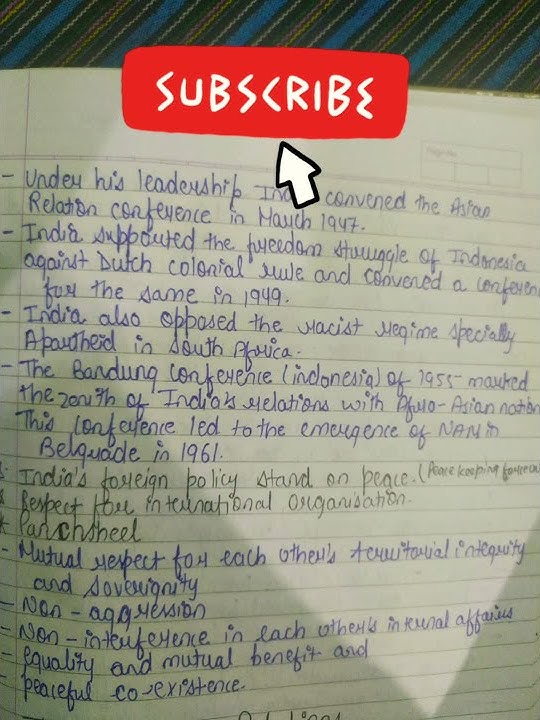 SUBSCRIBE
Page No.
- Under his leadership convened the Asian
Relation conference in March 1947.
- India supported the freedom struggle of Indonesia
against Dutch colonial rule and convened a conferen
for the same in 1949.
- India also opposed the racist regime specially
Apartheid in South Africa.
- The Bandung conference (indonesia) of 1955 marked
the zenith of India's relations with Afro-Asian nation
This conference led to the emergence of NAM in
Belgrade in 1961.
India's foreign policy stand on peace. (Peace keeping
Respect for international organisation.
Panchsheel
- Mutual respect for each other's territorial integrity
and sovereignity
- Non-aggression
- Non-interference in each other's internal affairs
- equality and mutual benefit and
- peaceful co-existence.